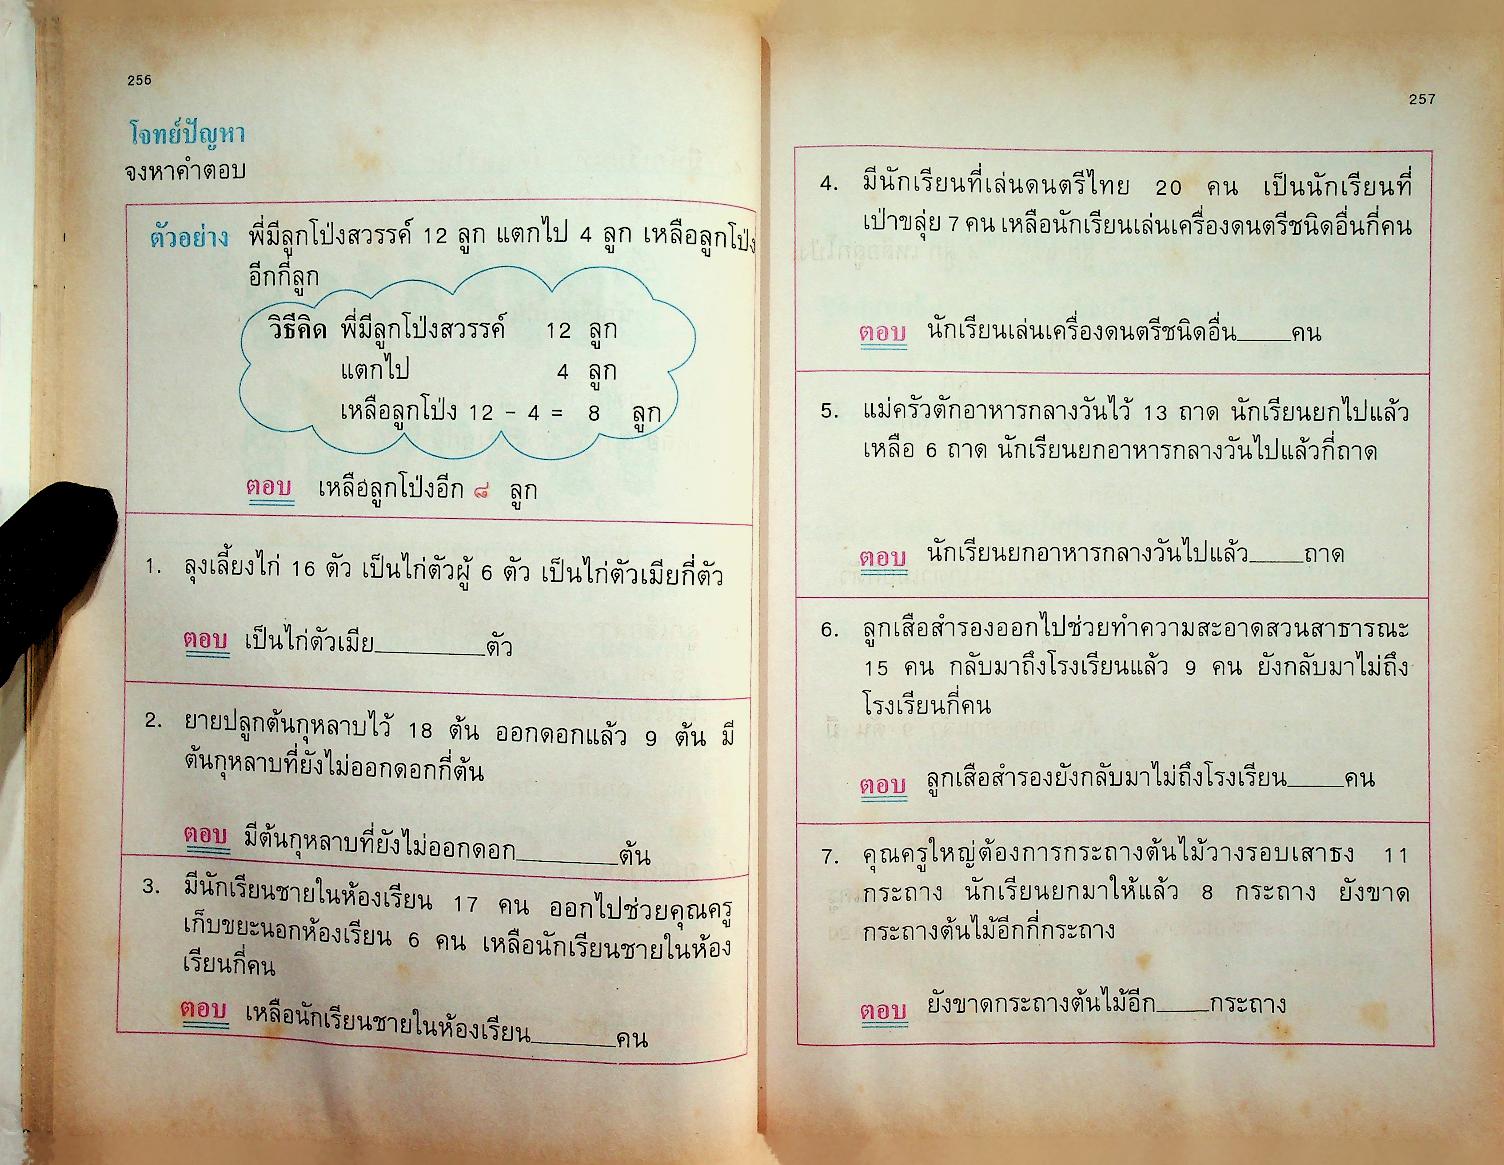 256
โจทย์ปัญหา
จงหาคำตอบ
ตัวอย่าง พี่มีลูกโป่งสวรรค์ 12 ลูก แตกไป 4 ลูก เหลือลูกโป่ง
อีกกี่ลูก
วิธีคิด พี่มีลูกโป่งสวรรค์ 12 ลูก
แตกไป 4 ลูก
เหลือลูกโป่ง 12 - 4 = 8 ลูก
ตอบ เหลือลูกโป่งอีก ๘ ลูก
1. ลุงเลี้ยงไก่ 16 ตัว เป็นไก่ตัวผู้ 6 ตัว เป็นไก่ตัวเมียกี่ตัว
ตอบ เป็นไก่ตัวเมีย________ตัว
2. ยายปลูกต้นกุหลาบไว้ 18 ต้น ออกดอกแล้ว 9 ต้น มี
ต้นกุหลาบที่ยังไม่ออกดอกกี่ต้น
ตอบ มีต้นกุหลาบที่ยังไม่ออกดอก________ต้น
3. มีนักเรียนชายในห้องเรียน 17 คน ออกไปช่วยคุณครู
เก็บขยะนอกห้องเรียน 6 คน เหลือนักเรียนชายในห้อง
เรียนกี่คน
ตอบ เหลือนักเรียนชายในห้องเรียน________คน
257
4. มีนักเรียนที่เล่นดนตรีไทย 20 คน เป็นนักเรียนที่
เป่าขลุ่ย 7 คน เหลือนักเรียนเล่นเครื่องดนตรีชนิดอื่นกี่คน
ตอบ นักเรียนเล่นเครื่องดนตรีชนิดอื่น____คน
5. แม่ครัวตักอาหารกลางวันไว้ 13 ถาด นักเรียนยกไปแล้ว
เหลือ 6 ถาด นักเรียนยกอาหารกลางวันไปแล้วกี่ถาด
ตอบ นักเรียนยกอาหารกลางวันไปแล้ว____ถาด
6. ลูกเสือสำรองออกไปช่วยทำความสะอาดสวนสาธารณะ
15 คน กลับมาถึงโรงเรียนแล้ว 9 คน ยังกลับมาไม่ถึง
โรงเรียนกี่คน
ตอบ ลูกเสือสำรองยังกลับมาไม่ถึงโรงเรียน____คน
7. คุณครูใหญ่ต้องการกระถางต้นไม้วางรอบเสาธง 11
กระถาง นักเรียนยกมาให้แล้ว 8 กระถาง ยังขาด
กระถางต้นไม้อีกกี่กระถาง
ตอบ ยังขาดกระถางต้นไม้อีก____กระถาง